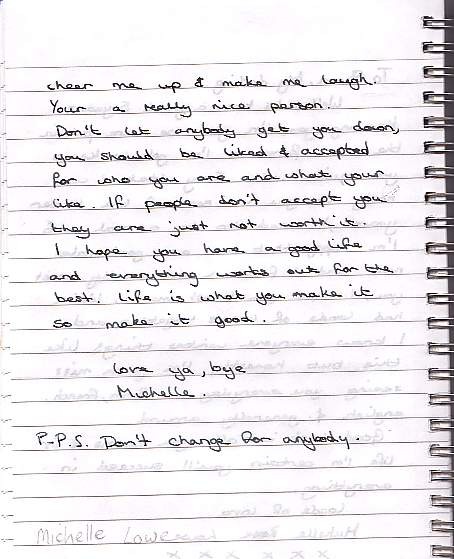 cheer me up & make me laugh.
Your a really nice person.
Don't let anybody get you down,
you should be liked & accepted
for who you are and what your
like. If people don't accept you
they are just not worth it.
I hope you have a good life
and everything works out for the
best. Life is what you make it
so make it good.
Love ya, bye
Michelle.
P-P.S. Don't change for anybody.
Michelle Lowe